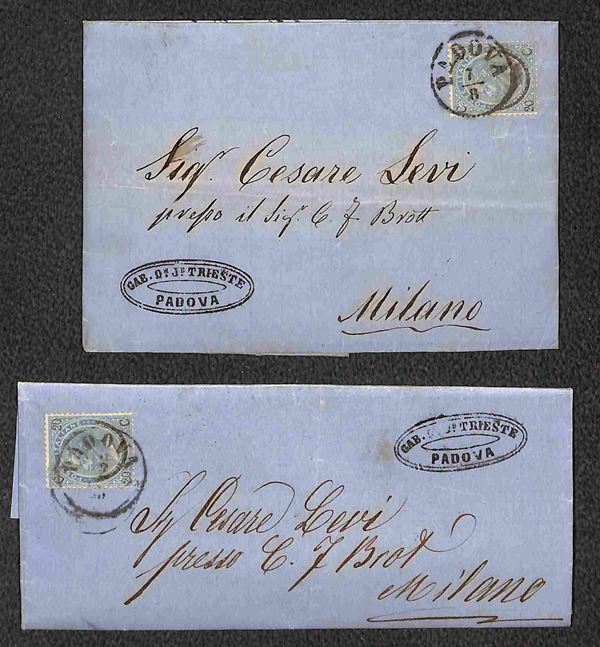 PADOVA
7
8
20
Sigr. Cesare Levi
presso il Sigr. C. J. Brott
GAB. Di Ji TRIESTE
PADOVA
Milano
20
PADOVA
2
GAB. Di Ji TRIESTE
PADOVA
Sig Cesare Levi
presso C. J Brot
Milano